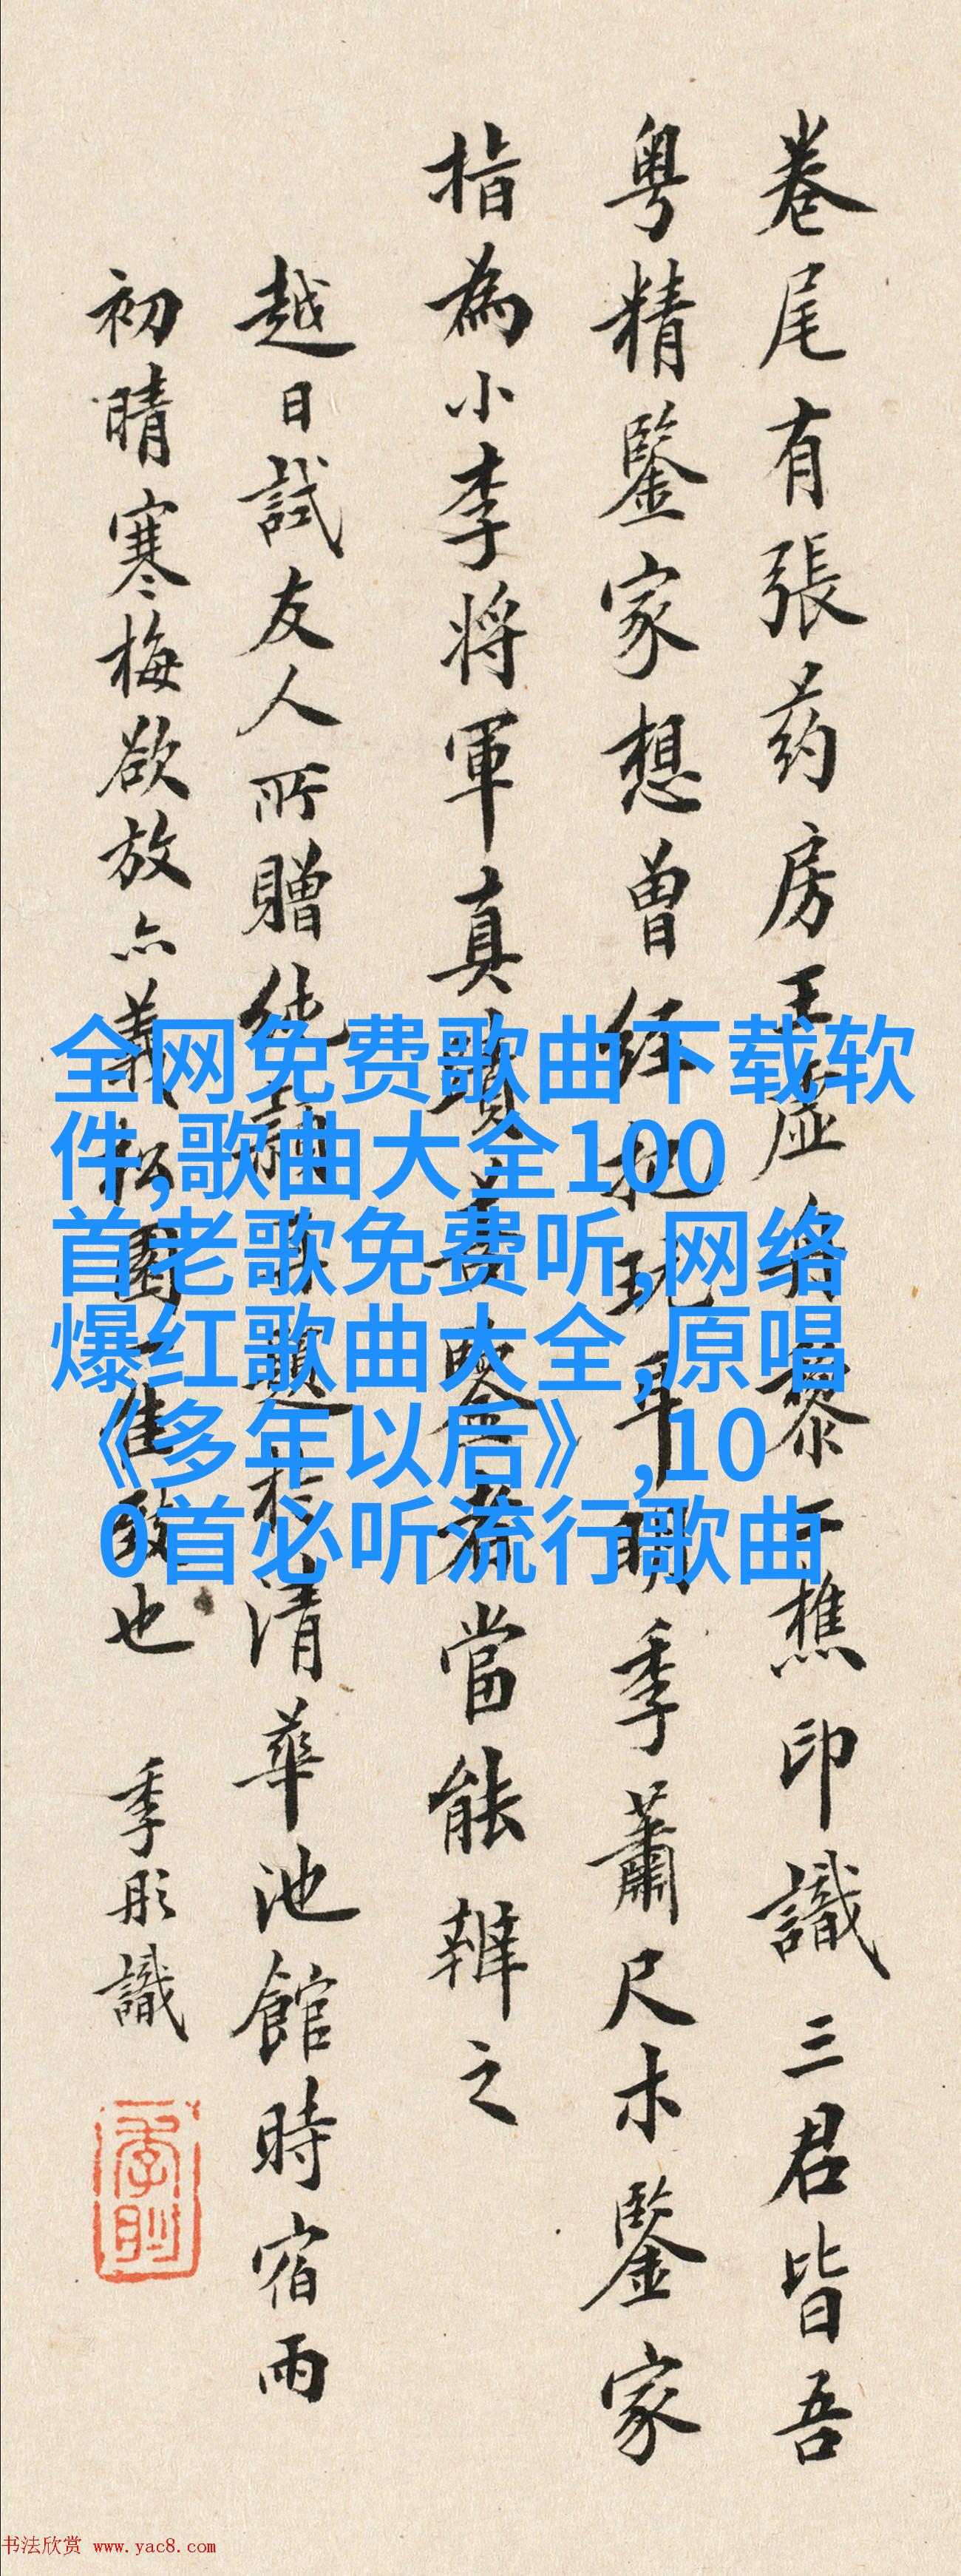 卷尾有張药房王虛舟黎二樵印識三君皆吾
粤精鑒家想曾经把玩耳明季蕭尺木鑒家
指為小李将軍真蹟善鑒者當能辨之
越日試友人所贈純羊毫題於清華池館時宿雨
初晴寒梅欲放亦義松園一佳致也
季彤識
全网免费歌曲下载软
件,歌曲大全100
首老歌免费听,网络
爆红歌曲大全,原唱
《多年以后》,10
0首必听流行歌曲
书法欣赏 www.yac8.com